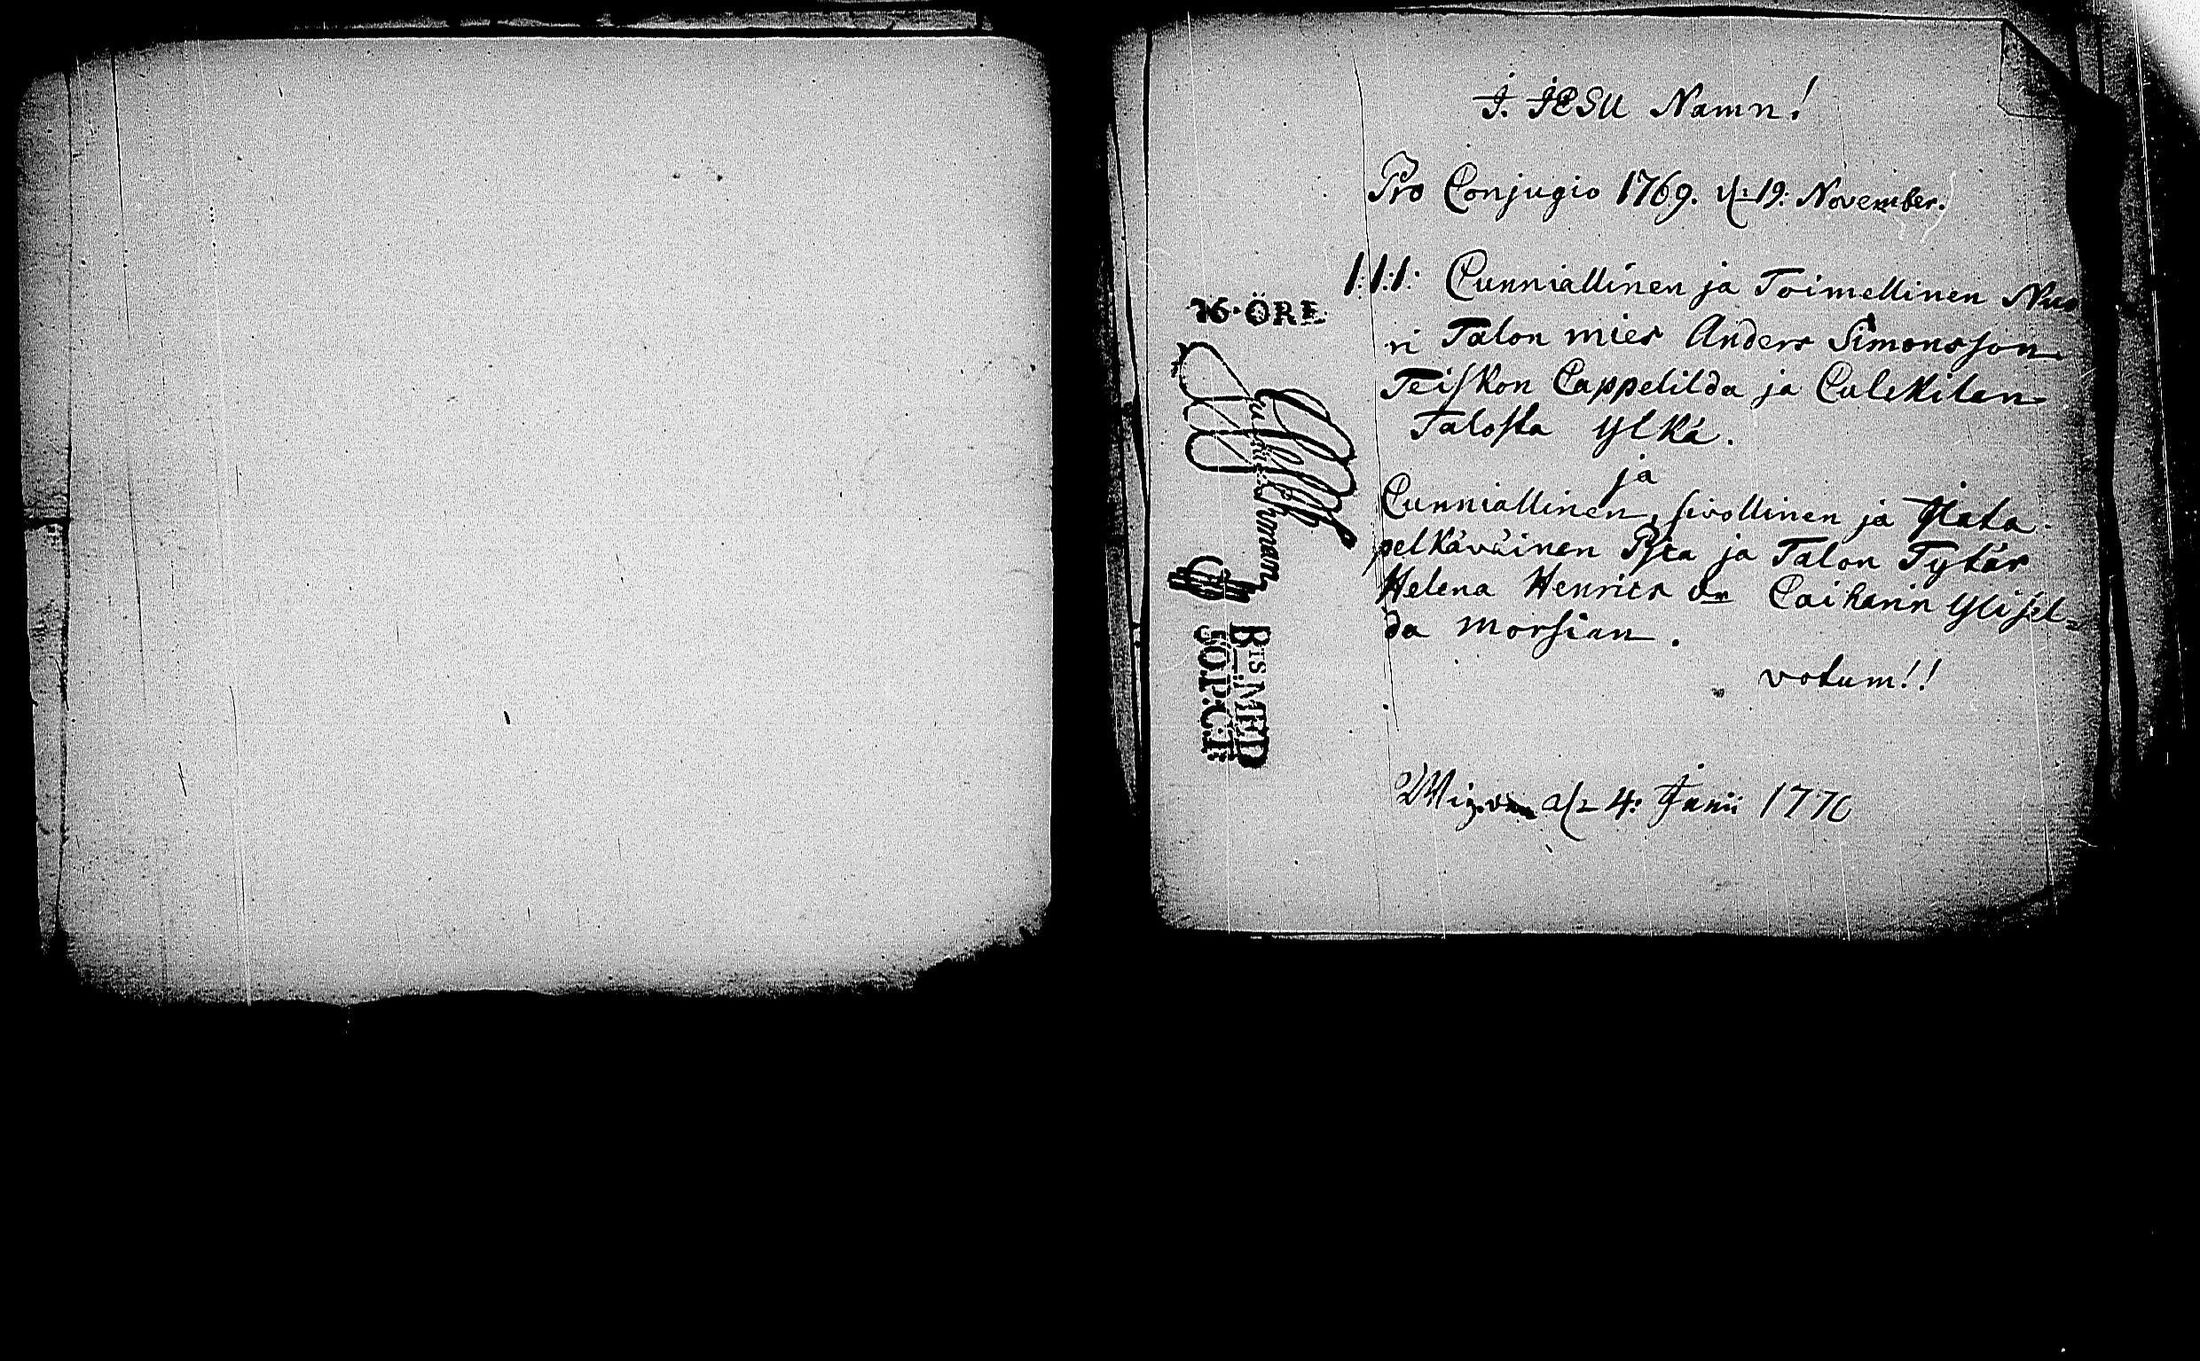 J. JESU Namn!
Pro Conjugio 1769. d. 19. November.
1:1:1: Cunniallinen ja Toimellinen Nuo
ri Talon mies Anders Simonsson
Teiskon Cappelilda ja Culckilan
Talosta Ylkä.
ja
Cunniallinen, sivollinen ja
pelkäväinen Pika ja Talon Tytär
Helena Henrics Dr Caiharin Ylisel=
da morsian.
votum!!
d. 4: Junii 1770
16·ÖRE
BIS MED
50.P.C.F